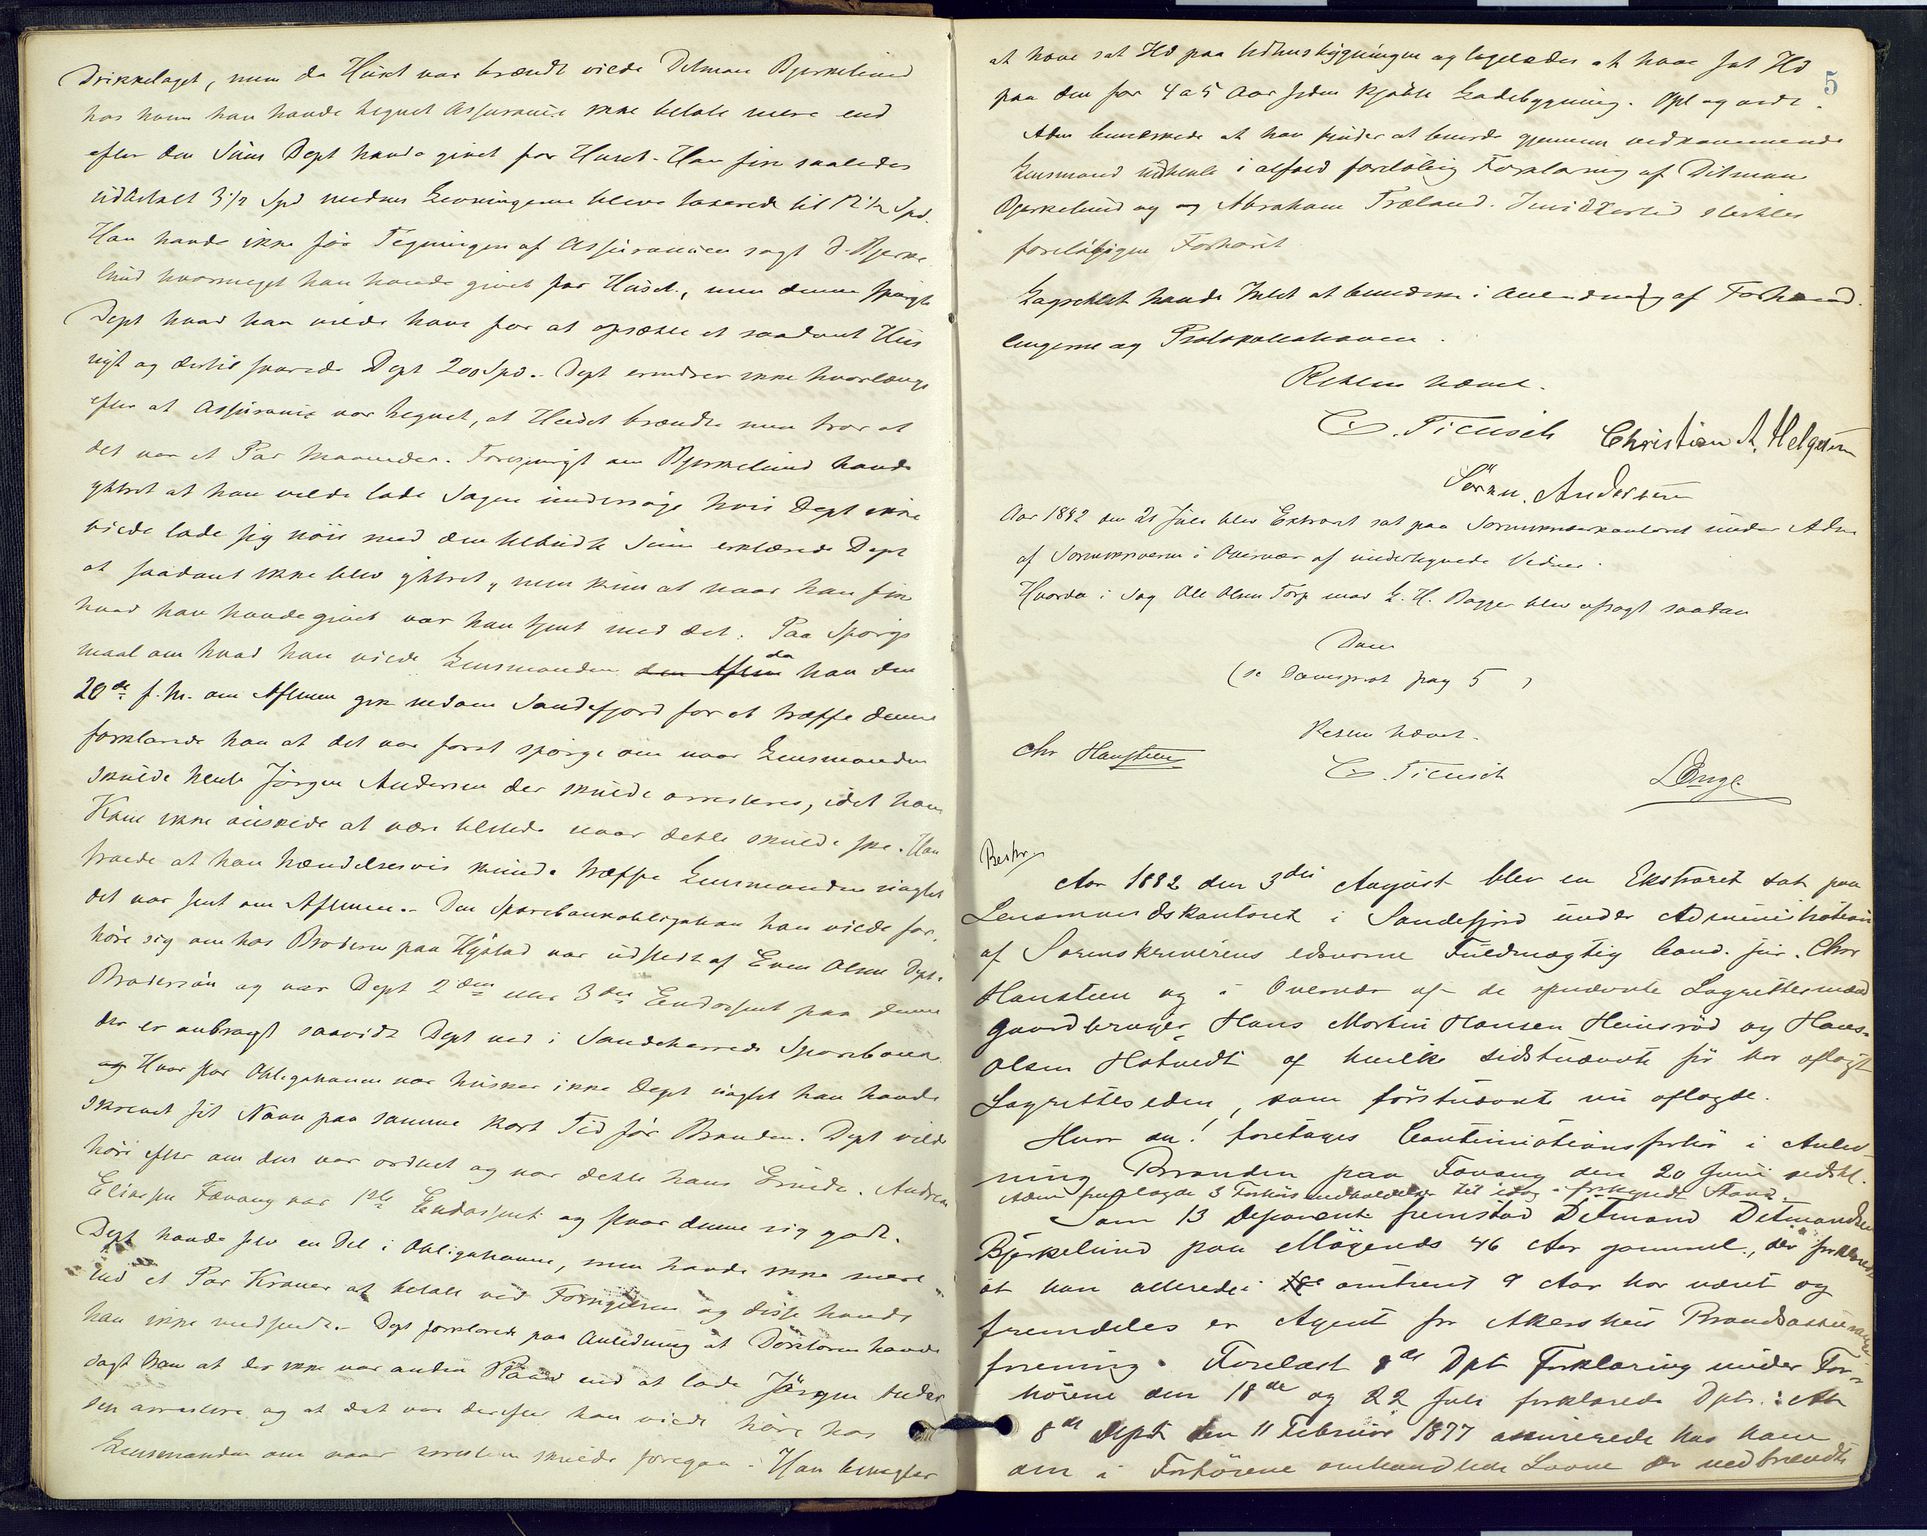 Drikkelaget, men da Huset var brændt vilde Ditman Bjerkelund
hos ham han havde tegnet Assurance ikke betale mere end
efter den Sum Dept havde givet for Huset. Han fik saaledes
udbetalt 3 1/2 Spd medens Levningerne bleve taxerede til 12 Spd.
Han havde ikke før Tegningen af Assurancen sagt D. Bjerke
lund hvormeget han havde givet for Huset, men denne spurgte
Dept hvad han vilde have for at opsætte et saadant Hus
nyt og dertil svarede Dept 200 Spd. Dept erindrer ikke hvorlænge
efter at Assurance var tegnet, at Huset brændte men tror at
det var et Par Maaneder. Forespurgt om Bjerkelund havde
yttret at han vilde lade Sagen undersøge hvis Dept ikke
vilde lade sig nøie med den tilbudte Sum erklærede Dept
at saadant ikke blev yttret, men kun at naar han fik
hvad han havde givet var han tjent med det. Paa Spørgs
maal om hvad han vilde Lensmanden da han den
20de f. M. om Aftenen gik nedom Sandefjord for at træffe denne
forklarede han at det var forat spørge om naar Lensmanden
skulde hente Jørgen Andersen der skulde arresteres, idet hans
Kone ikke ønskede at være tilstede naar dette skulde ske. Han
troede at han hændelsesvis kunde træffe Lensmanden uagtet
det var sent om Aftenen. Den Sparebankobligation han vilde for
høre sig om hos Broderen paa Hystad var udstedt af Even Olsen Depts
Brodersøn og var Dept 2den eller 3die Endossent paa denne
der er anbragt saavidt Dept ved i Sandeherreds Sparebank
Hvor stor Obligationen var husker ikke Dept uagtet han havde
skrevet sit Navn paa samme kort Tid før Branden. Dept vilde
høre efter om den var ordnet og var dette hans Ærinde. Andreas
Eliasen Fævang var 1ste Endossent og staar denne sig godt.
Dept havde selv en Del i Obligationen, men havde ikke mere
end et Par Kroner at betale ved Fornyelsen og disse havde
han ikke medsendt. Dept forklarede paa Anledning at Doktoren havde
sagt ham at der ikke var anden Raad end at lade Jørgen Ander
sen arrestere og at det var derefter han vilde høre hos
Lensmanden om naar arresten skulde foregaa. Han benegter
5
at have sat Ild paa Udhusbygningen og ligeledes at have sat Ild
paa den for 4 a 5 Aar siden kjøbte Ladebygning. Opl og vedt.
Adm bemærkede at han finder at burde gjennem vedkommende
Lensmand indhente i alfald foreløbig Forklaring af Ditman
Bjerkelund og Abraham Træland. Imidlertid sluttes
foreløbigen Forhøret.
Lagrettet havde Intet at bemærke i Anledning af Forhand
lingerne og Protokollationen.
Retten hævet.
C. Fiensch Christian A. Helgesen
Søren Andersen
Aar 1882 den 21 Juli blev Extraret sat paa Sorenskriverkontoret under Adm
af Sorenskriveren i Overvær af undertegnede Vidner.
Hvorda i Sag Ole Olsen Torp mod L. H. Bagger blev afsagt saadan
Dom
(se Domsprot pag 5)
Retten hævet.
Chr Hansteen C. Fiensch Lange
Beskr.
Aar 1882 den 3die August blev en Ekstraret sat paa
Lensmandskontoret i Sandefjord under Administration
af Sorenskriverens edsvorne Fuldmægtig Cand. jur. Chr
Hansteen og i Overvær af de opnævnte Lagrettesmænd
Gaardbruger Hans Martin Hansen Heimrød og Hans
Olsen Hotvedt af hvilke sidstnævnte før har aflagt
Lagretteseden, som førstnævnte nu aflagde.
Hvor da! foretages Continuationsforhør i Anled
ning Branden paa Fævang den 20 Juni sidstl.
Adm fremlagde 3 Forhørsindkaldelser til idag i forkyndt Stand.
Som 13 Deponent fremstod Ditmand Ditmandsen
Bjerkelund paa Møgends 46 Aar gammel, der forklarede
at han allerede i omtrent 9 Aar har været og
fremdeles er Agent for Akershus Brandassurance
forening. Forelæst 8de Dpts Forklaring under For
hørene den 18de og 22 Juli forklarede Dpts: At
8de Dept den 11 Februar 1877 assurerede hos ham
om i Forhørene omhandlede Laane er nedbrændte